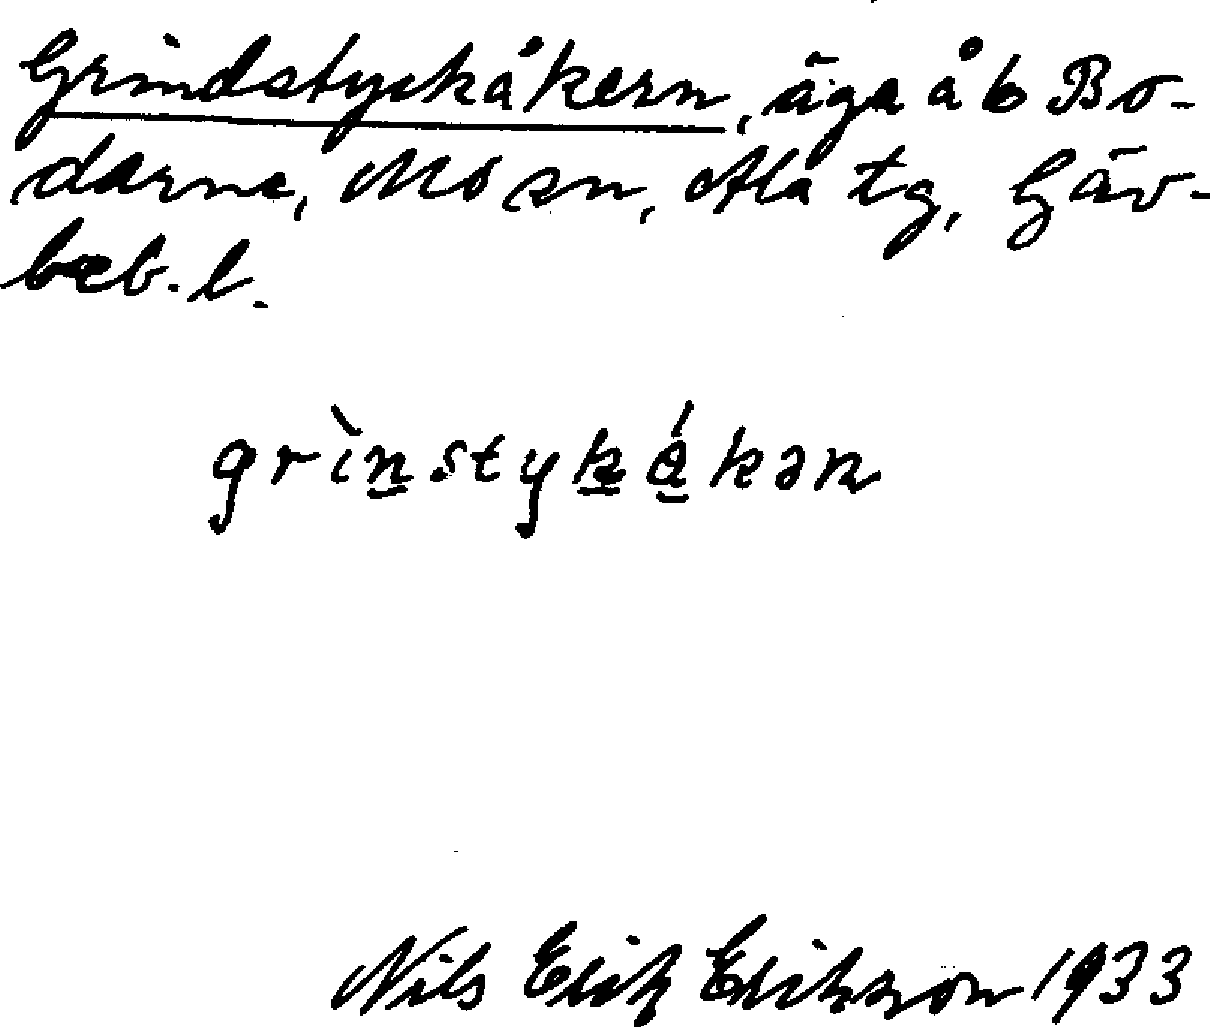 Grindstyckåkern, äga å b Bo-
darne, Mo sn, Ala tg, Gäv-
leb. l.
grìn̲styk̲ǻ̲kən
Nils Erik Erikson 1933